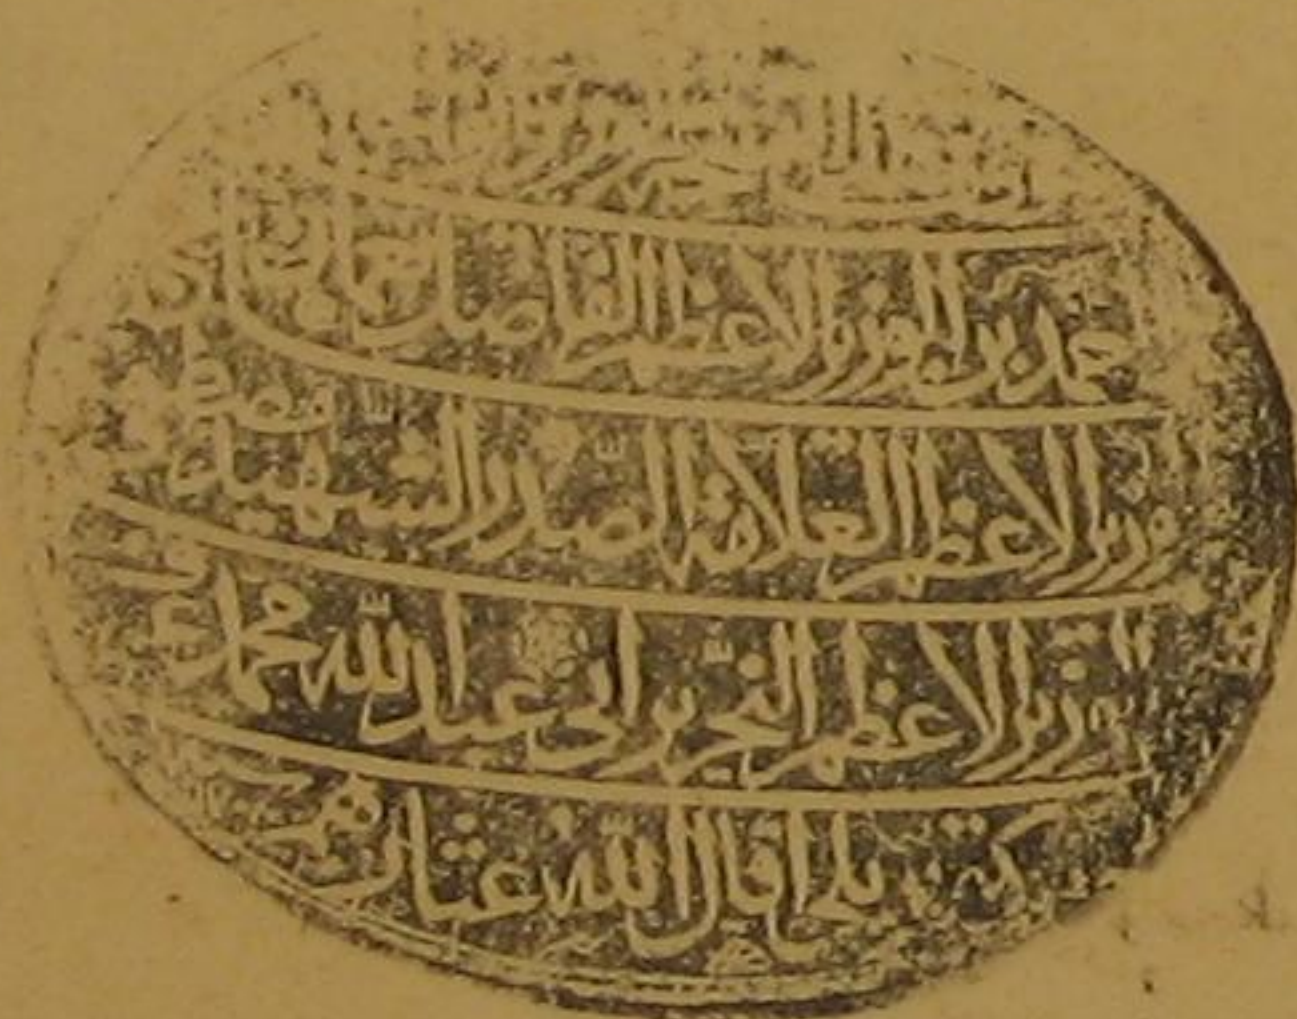 احمد بن الوزير الاعظم الفاضل نعمان
الوزير الاعظم العلامة الصدر الشهيد مصطفى
الوزير الاعظم النحرير ابي عبد الله محمد عرف
بكوپريلي اقال الله عثارهم